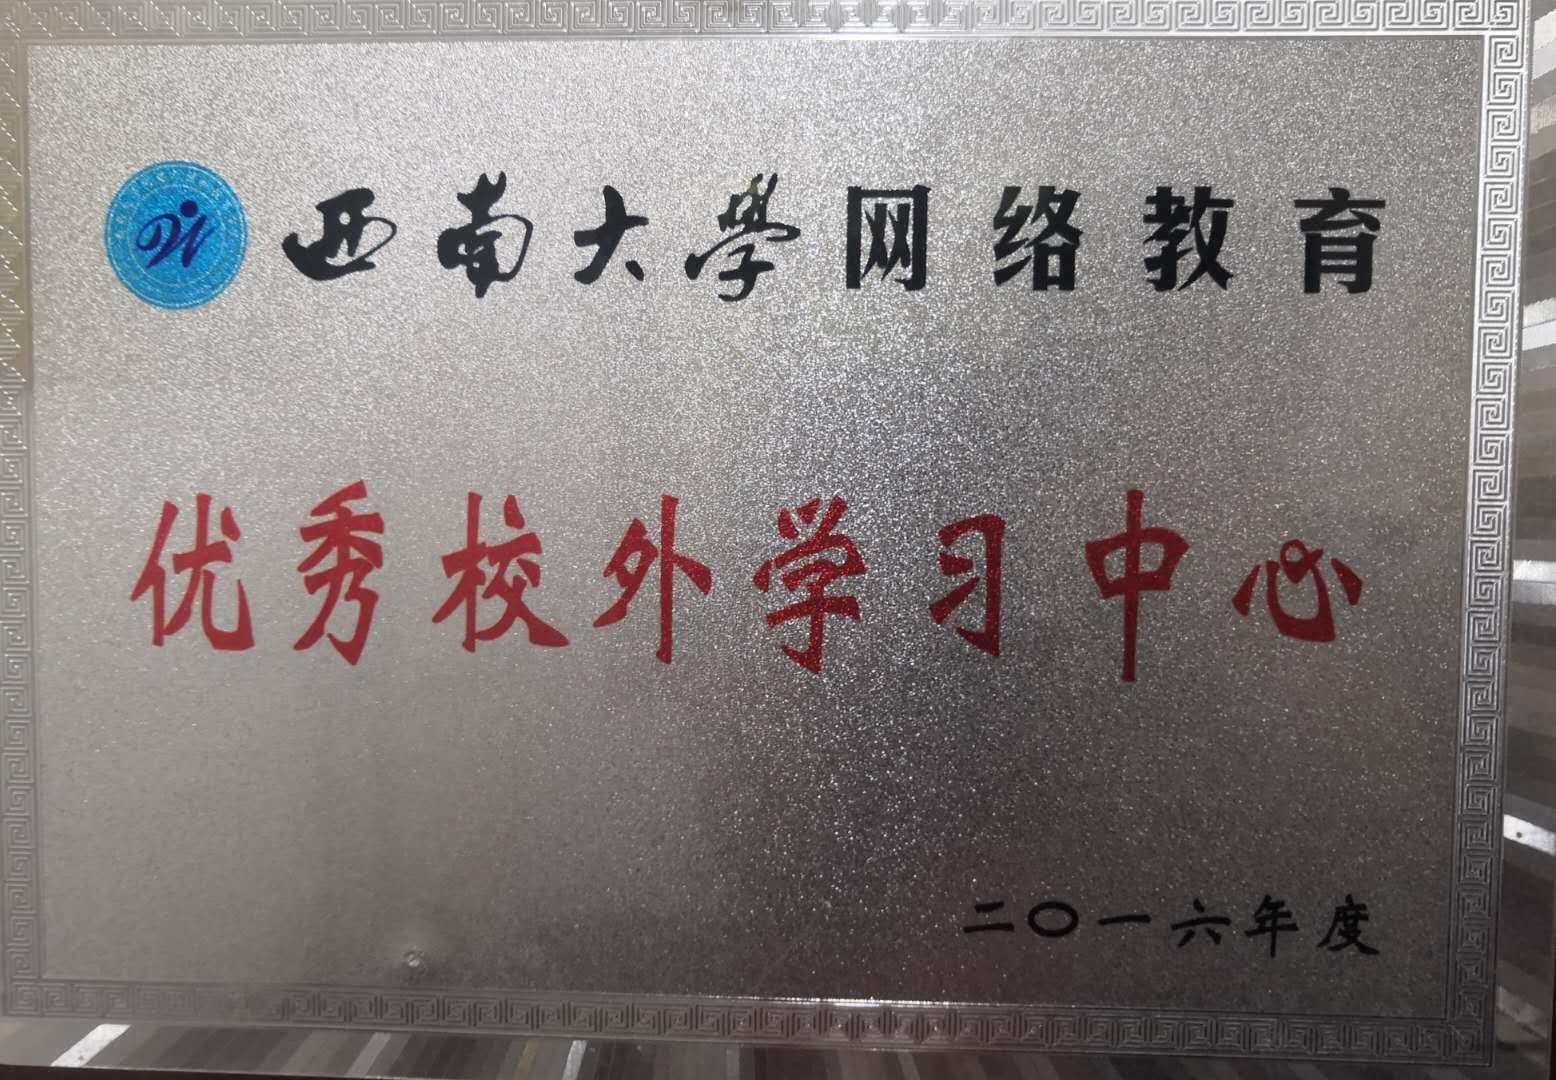 西南大學网络教育
优秀校外学习中心
二〇一六年度